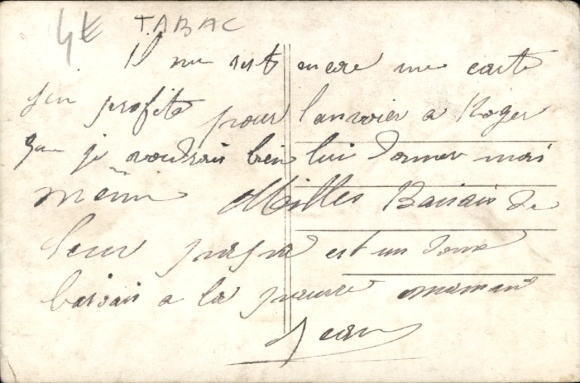 4€ TABAC
Il me reste encore une carte
j'en profite pour l'envoier a Roger
que je voudrais bien lui donner moi
même Milles Baisais de
leur papa est un doux
baisais a la pauvre maman
Jean